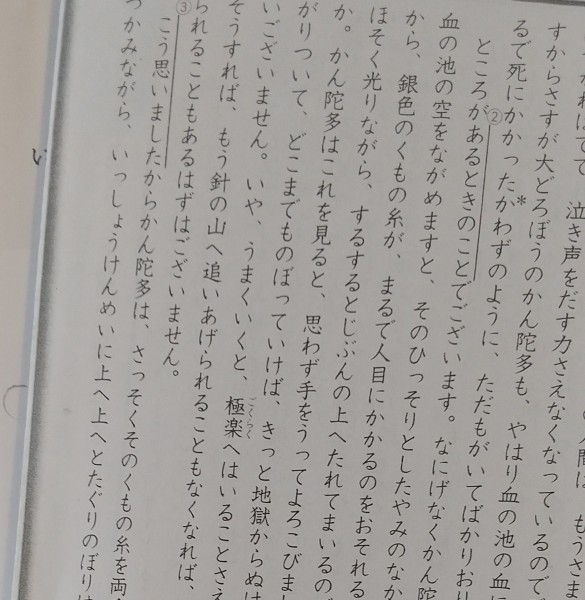 泣き声をだす力さえなくなっているので
すからさすが大どろぼうのかん陀多も、やはり血の池の血に
るで死にかかった*かわずのように、ただもがいてばかりおり
ところが②あるときのことでございます。なにげなくかん陀
血の池の空をながめますと、そのひっそりとしたやみのなか
から、銀色のくもの糸が、まるで人目にかかるのをおそれる
ほそく光りながら、するするとじぶんの上へたれてまいるの
か。かん陀多はこれを見ると、思わず手をうってよろこびま
がりついて、どこまでものぼっていけば、きっと地獄からぬけ
いございません。いや、うまくいくと、極楽へはいることさえ
ごくらく
そうすれば、もう針の山へ追いあげられることもなくなれば、
られることもあるはずはございません。
③こう思いましたからかん陀多は、さっそくそのくもの糸を両
つかみながら、いっしょうけんめいに上へ上へとたぐりのぼり